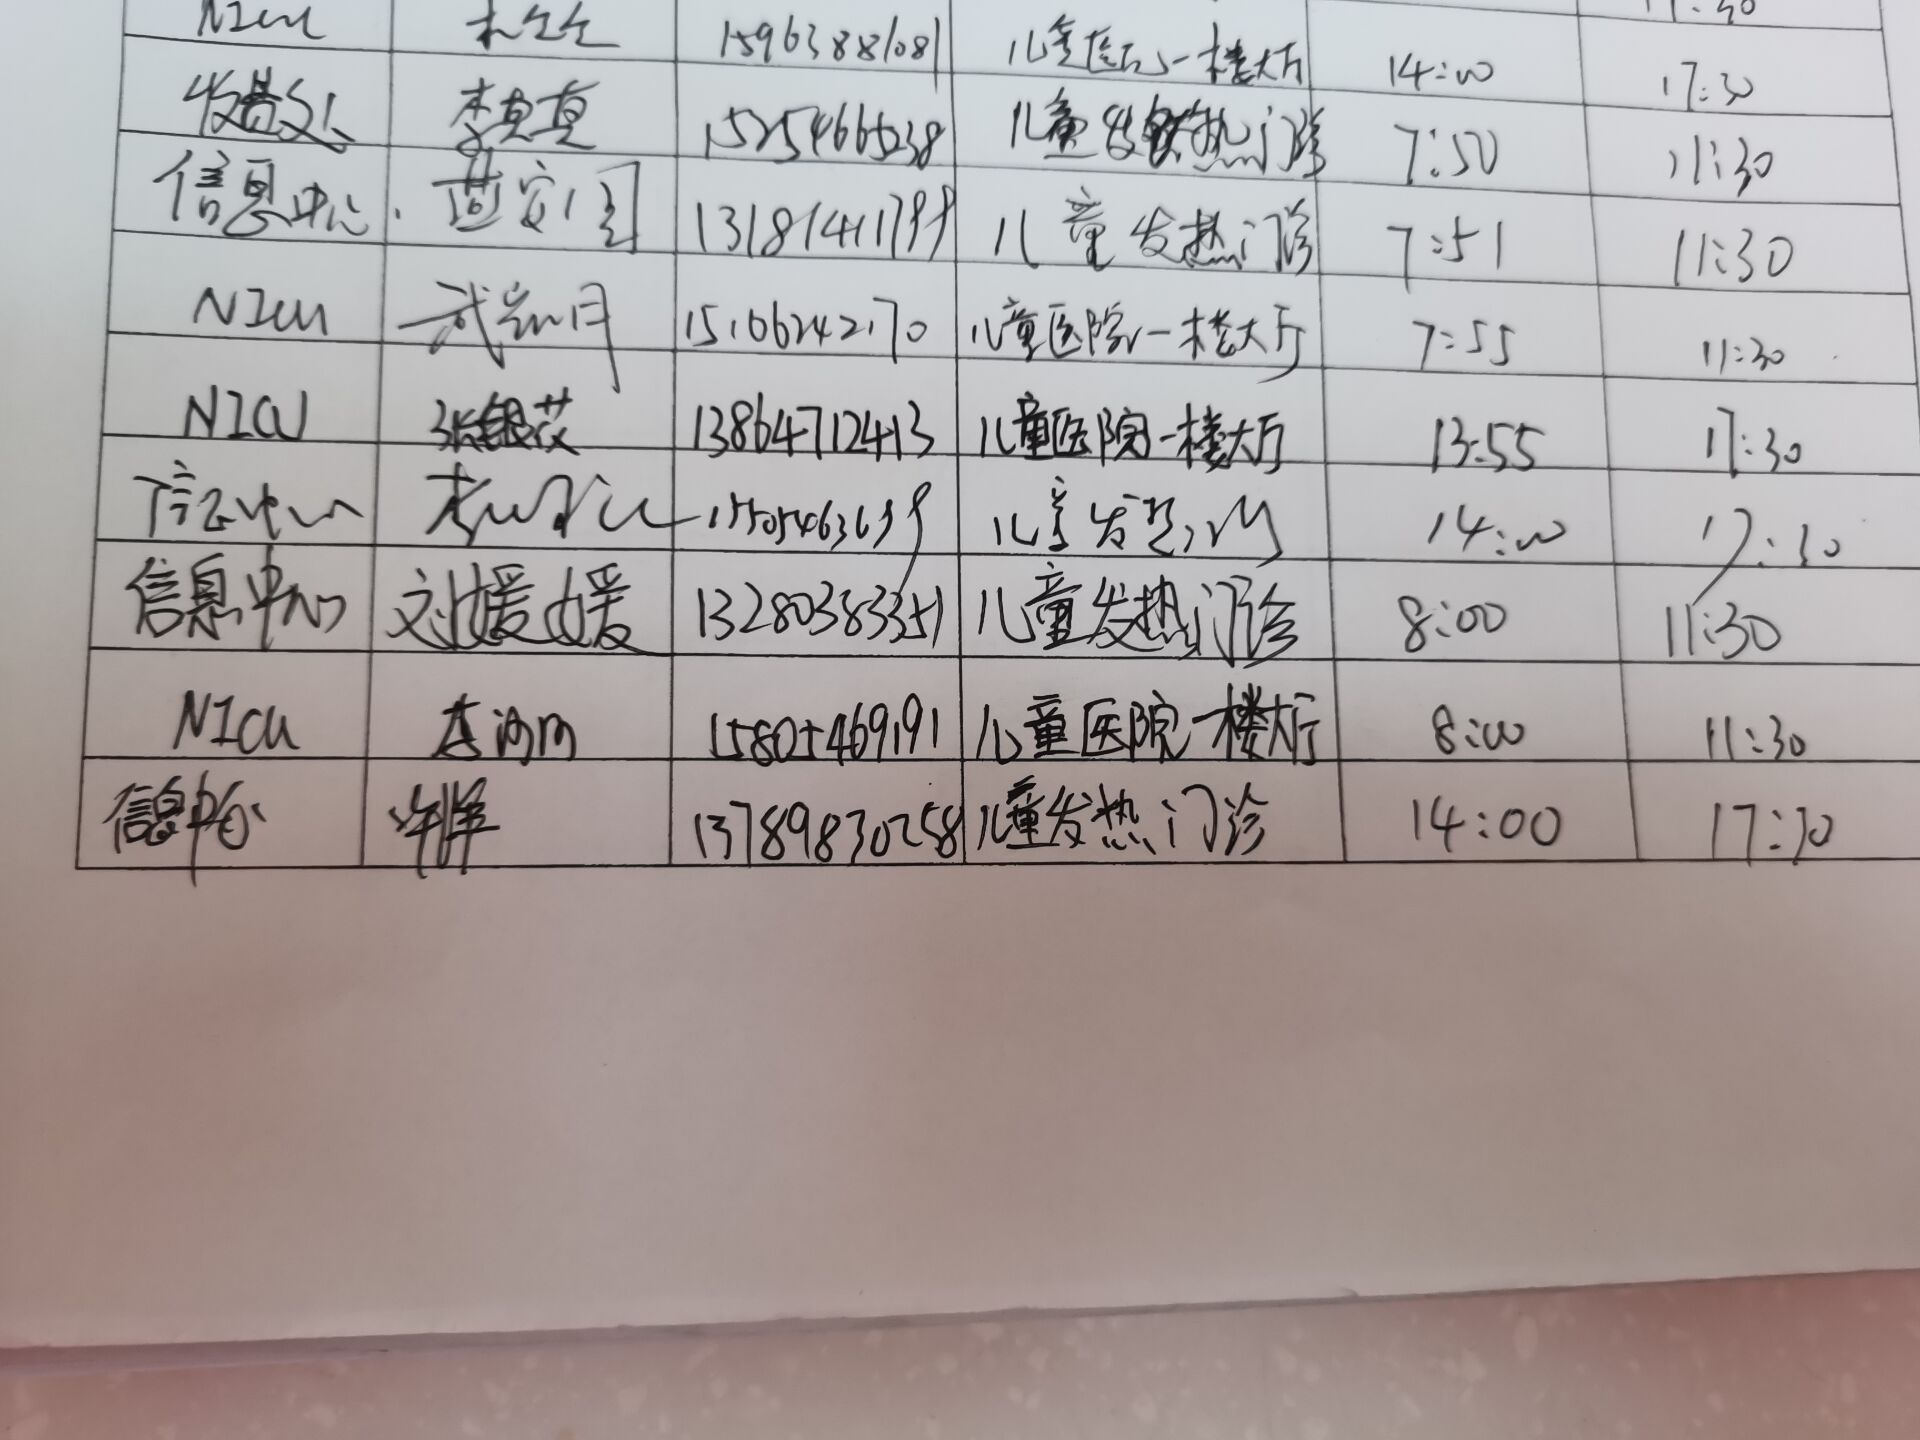 11:30
NICU 15963881081 儿童医院一楼大厅 14:00 17:30
收费处 李真真 15254665238 儿童发热门诊 7:50 11:30
信息中心 13181411799 儿童发热门诊 7:51 11:30
NICU 武 月 15106242170 儿童医院一楼大厅 7:55 11:30
NICU 张银花 13864712413 儿童医院一楼大厅 13:55 17:30
信息中心 李 儿童发热门诊 14:00 17:30
信息中心 刘媛媛 13280383351 儿童发热门诊 8:00 11:30
NICU 李 15805469191 儿童医院一楼大厅 8:00 11:30
信息中心 许洋 13789830258 儿童发热门诊 14:00 17:30